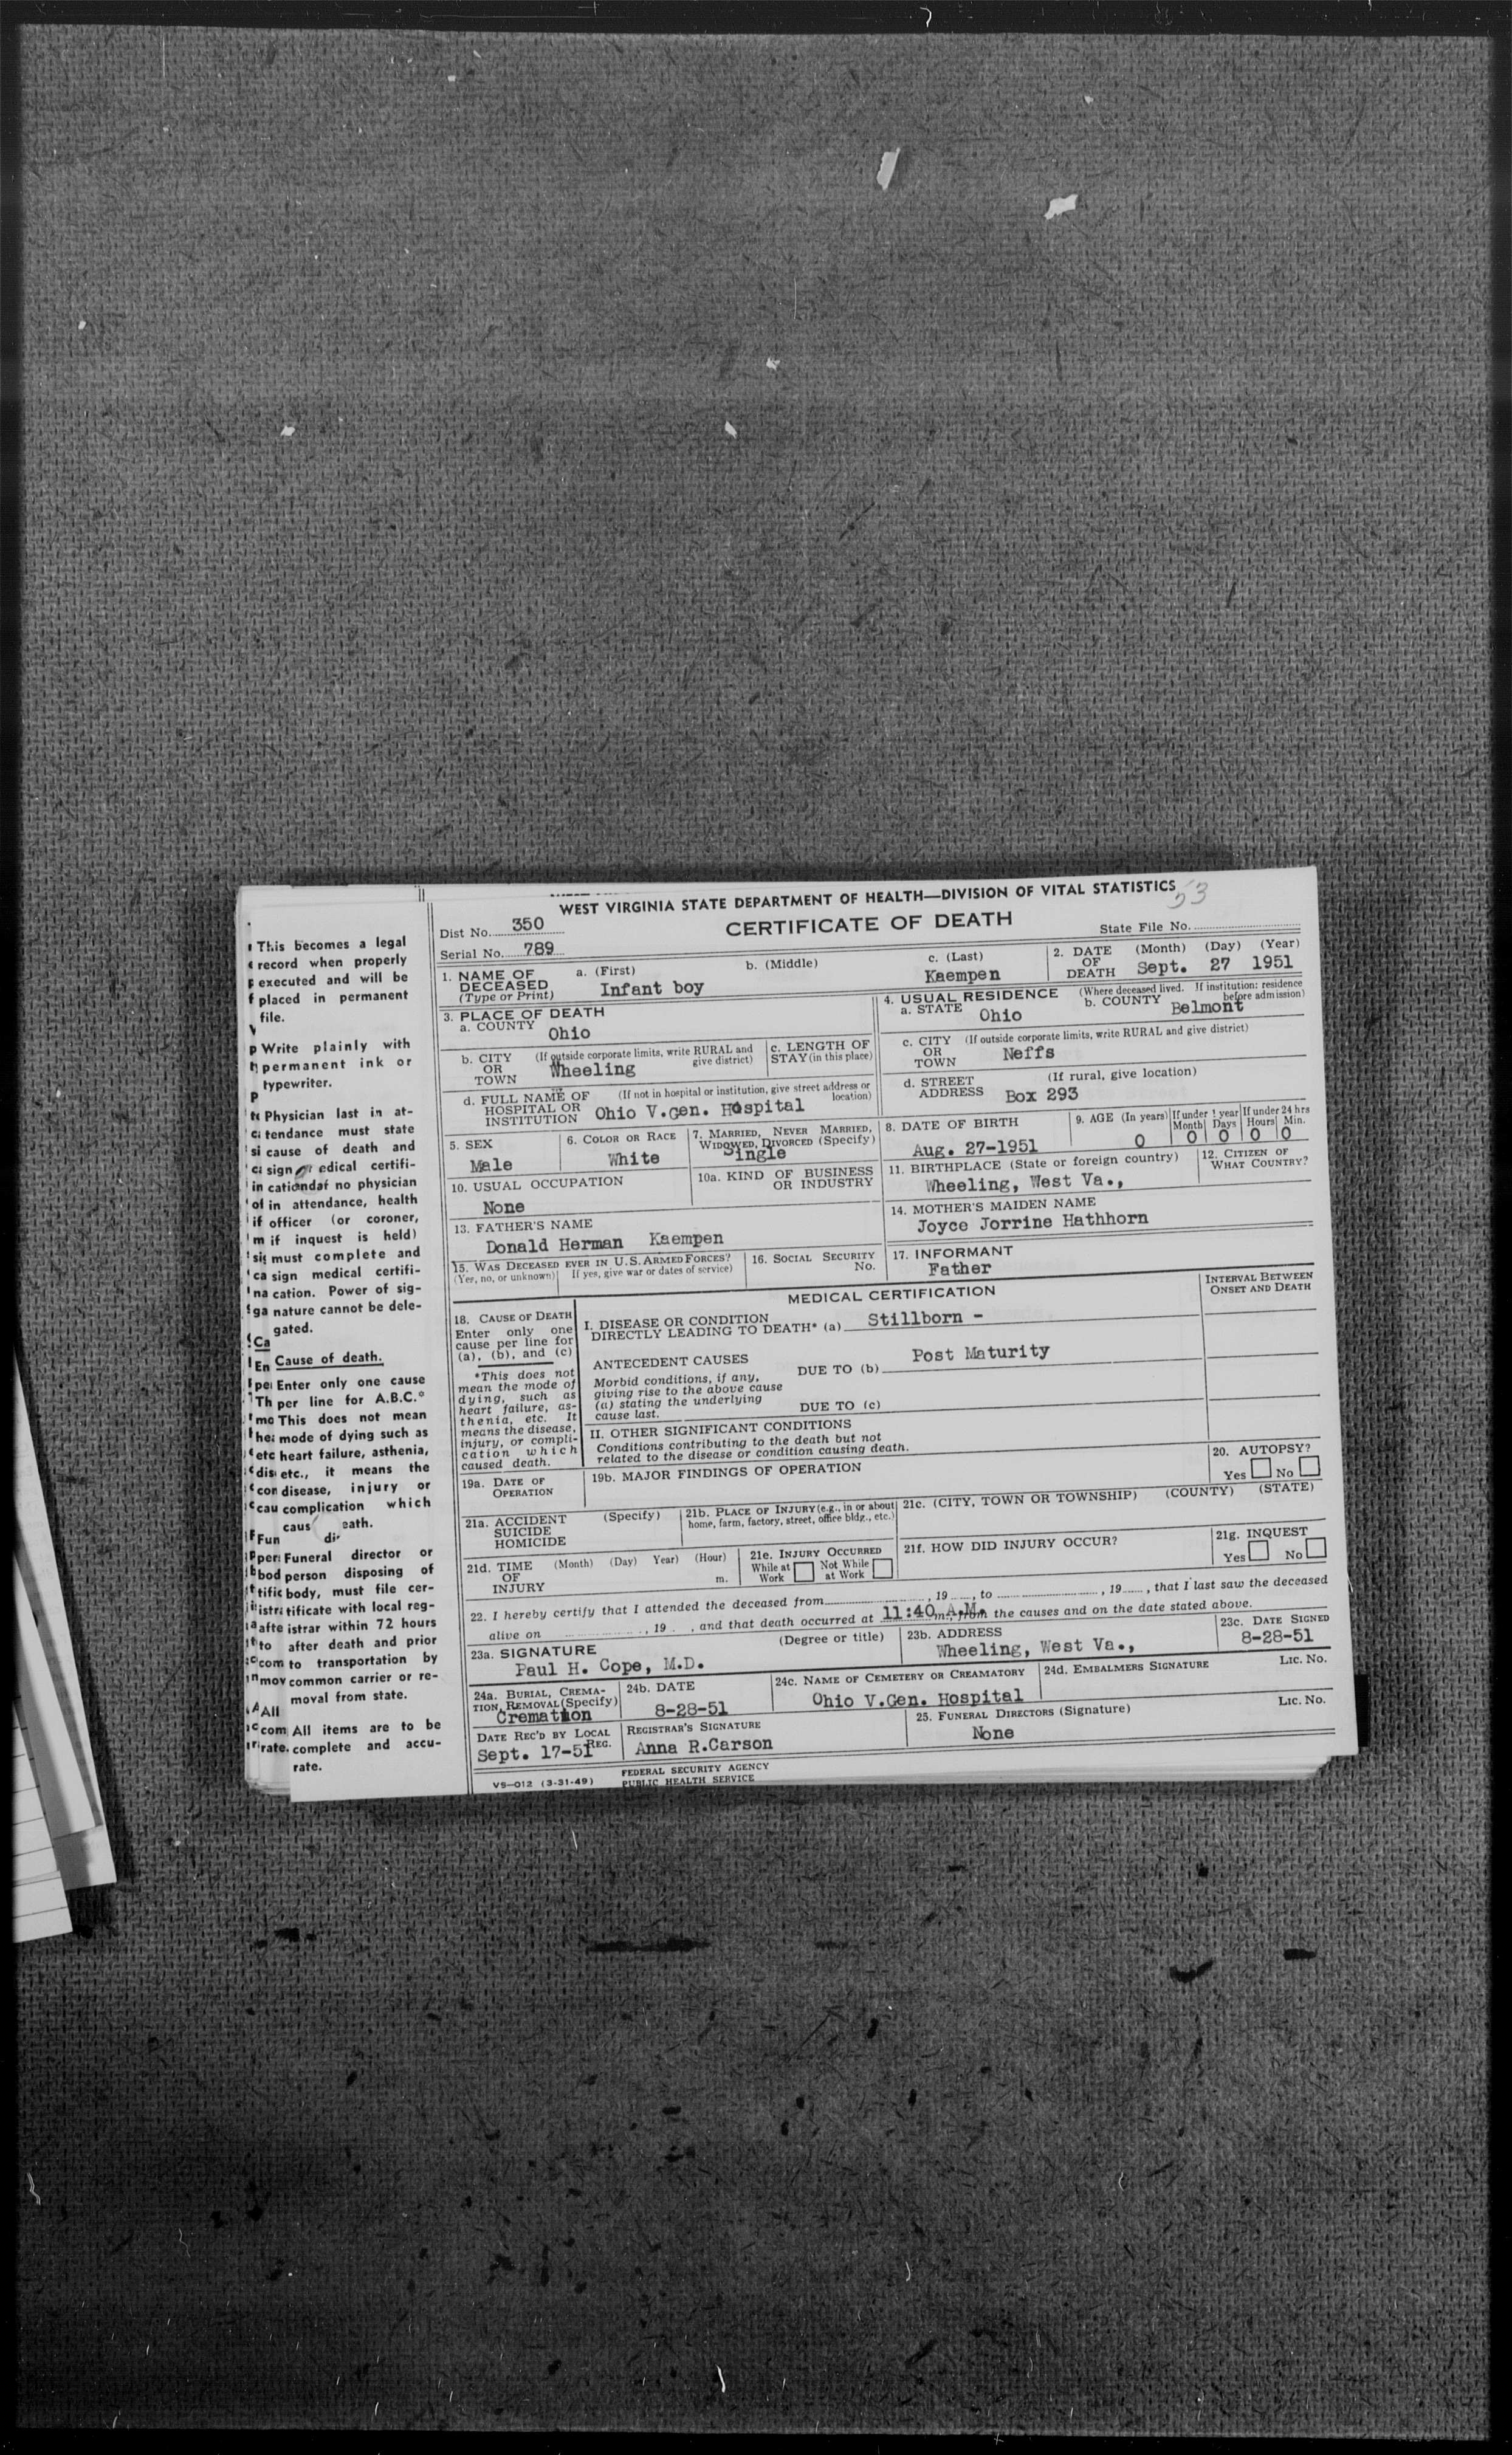 WEST VIRGINIA STATE DEPARTMENT OF HEALTH—DIVISION OF VITAL STATISTICS
53
Dist No. 350
CERTIFICATE OF DEATH
State File No.
Serial No. 789
1. NAME OF DECEASED (Type or Print)
a. (First) Infant boy
b. (Middle)
c. (Last) Kaempen
2. DATE OF DEATH (Month) (Day) (Year) Sept. 27 1951
3. PLACE OF DEATH
a. COUNTY Ohio
4. USUAL RESIDENCE (Where deceased lived. If institution: residence before admission)
a. STATE Ohio
b. COUNTY Belmont
b. CITY OR TOWN (If outside corporate limits, write RURAL and give district) Wheeling
c. LENGTH OF STAY (in this place)
c. CITY OR TOWN (If outside corporate limits, write RURAL and give district) Neffs
d. FULL NAME OF HOSPITAL OR INSTITUTION (If not in hospital or institution, give street address or location) Ohio V.Gen. Hospital
d. STREET ADDRESS (If rural, give location) Box 293
5. SEX Male
6. COLOR OR RACE White
7. MARRIED, NEVER MARRIED, WIDOWED, DIVORCED (Specify) Single
8. DATE OF BIRTH Aug. 27-1951
9. AGE (In years) 0
If under 1 year Month 0 Days 0
If under 24 hrs Hours 0 Min. 0
10. USUAL OCCUPATION None
10a. KIND OF BUSINESS OR INDUSTRY
11. BIRTHPLACE (State or foreign country) Wheeling, West Va.,
12. CITIZEN OF WHAT COUNTRY?
13. FATHER'S NAME Donald Herman Kaempen
14. MOTHER'S MAIDEN NAME Joyce Jorrine Hathhorn
15. WAS DECEASED EVER IN U.S. ARMED FORCES? (Yes, no, or unknown) If yes, give war or dates of service)
16. SOCIAL SECURITY No.
17. INFORMANT Father
MEDICAL CERTIFICATION
INTERVAL BETWEEN ONSET AND DEATH
18. CAUSE OF DEATH
Enter only one cause per line for (a), (b), and (c)
*This does not mean the mode of dying, such as heart failure, asthenia, etc. It means the disease, injury, or complication which caused death.
I. DISEASE OR CONDITION DIRECTLY LEADING TO DEATH* (a) Stillborn -
ANTECEDENT CAUSES
Morbid conditions, if any, giving rise to the above cause (a) stating the underlying cause last.
DUE TO (b) Post Maturity
DUE TO (c)
II. OTHER SIGNIFICANT CONDITIONS
Conditions contributing to the death but not related to the disease or condition causing death.
19a. DATE OF OPERATION
19b. MAJOR FINDINGS OF OPERATION
20. AUTOPSY? Yes No
21a. ACCIDENT SUICIDE HOMICIDE (Specify)
21b. PLACE OF INJURY (e.g., in or about home, farm, factory, street, office bldg., etc.)
21c. (CITY, TOWN OR TOWNSHIP) (COUNTY) (STATE)
21d. TIME OF INJURY (Month) (Day) Year) (Hour) m.
21e. INJURY OCCURRED While at Work Not While at Work
21f. HOW DID INJURY OCCUR?
21g. INQUEST Yes No
22. I hereby certify that I attended the deceased from , 19 , to , 19 , that I last saw the deceased
alive on , 19 , and that death occurred at 11:40 A.M. m., from the causes and on the date stated above.
23a. SIGNATURE (Degree or title) Paul H. Cope, M.D.
23b. ADDRESS Wheeling, West Va.,
23c. DATE SIGNED 8-28-51
24a. BURIAL, CREMATION, REMOVAL (Specify) Cremation
24b. DATE 8-28-51
24c. NAME OF CEMETERY OR CREAMATORY Ohio V.Gen. Hospital
24d. EMBALMERS SIGNATURE LIC. No.
DATE REC'D BY LOCAL REG. Sept. 17-51
REGISTRAR'S SIGNATURE Anna R.Carson
25. FUNERAL DIRECTORS (Signature) None
LIC. No.
VS—012 (3-31-49)
FEDERAL SECURITY AGENCY
PUBLIC HEALTH SERVICE
This becomes a legal
record when properly
executed and will be
placed in permanent
file.
Write plainly with
permanent ink or
typewriter.
Physician last in at-
tendance must state
cause of death and
sign edical certifi-
cation no physician
in attendance, health
officer (or coroner,
if inquest is held)
must complete and
sign medical certifi-
cation. Power of sig-
nature cannot be dele-
gated.
Cause of death.
Enter only one cause
per line for A.B.C.°
This does not mean
mode of dying such as
heart failure, asthenia,
etc., it means the
disease, injury or
complication which
caus eath.
Funeral director or
person disposing of
body, must file cer-
tificate with local reg-
istrar within 72 hours
after death and prior
to transportation by
common carrier or re-
moval from state.
All items are to be
complete and accu-
rate.